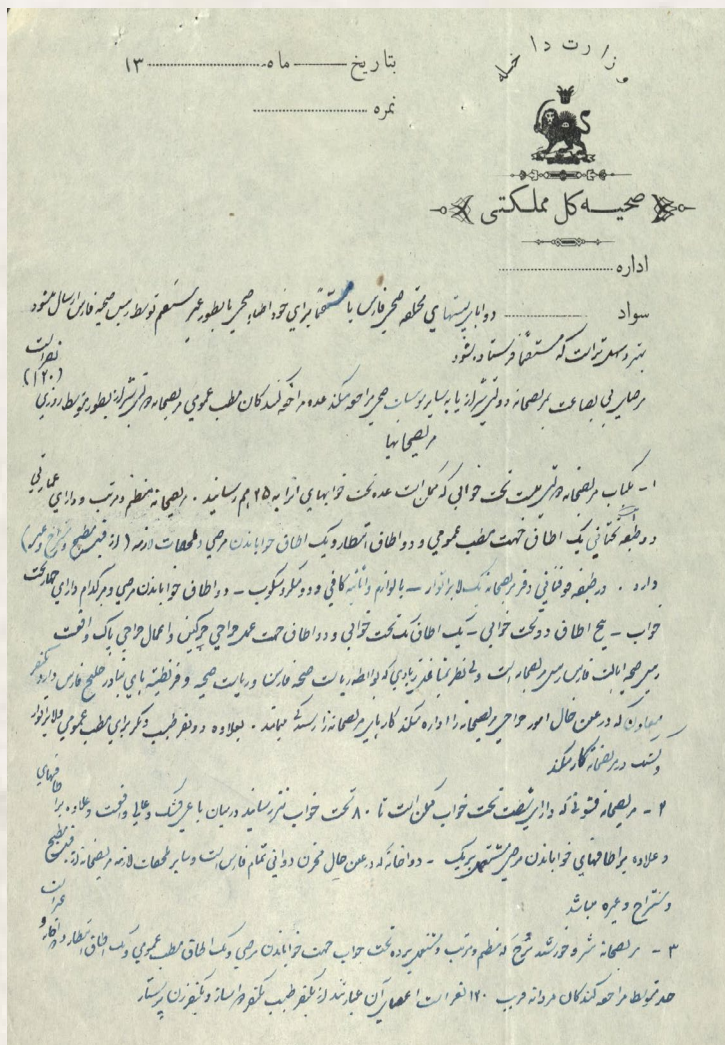 وزارت داخله
بتاریخ ماه ۱۳
نمره
صحیه کل مملکتی
اداره
سواد
دوا برای پستهای مختلفه صحی فارس یا مستقیماً برای خود اطباء صحی یا بطور غیر مستقیم توسط رئیس صحیه فارس ارسال میشود
بهتر و سهل تر است که مستقیماً فرستاده بشود
مرضای بی بضاعت بمریضخانه دولتی شیراز یا به سایر مؤسسات صحی مراجعه میکند عده مراجعه کنندگان مطب عمومی مریضخانه دولتی شیراز بطور متوسط روزی (۱۲۰) نفر است
مریضخانها
۱ - یکباب مریضخانه دولتی بیست تخت خوابی که ممکن است عده تخت خوابهای آنرا به ۲۵ هم رسانید . مریضخانه منظم و مرتب و دارای عمارتی
دو طبقه تحتانی یک اطاق جهت مطب عمومی و دو اطاق انتظار و یک اطاق خواباندن مرضی و ملحقات لازمه ( از قبیل مطبخ و مستراح و غیره )
دارد . در طبقه فوقانی دفتر مریضخانه یک لابراتوار - با لوازم و اثاثیه کافی و دو میکروسکوپ - دو اطاق خواباندن مرضی و هر کدام دارای چهار تخت
خواب - پنج اطاق دو تخت خوابی - یک اطاق یک تخت خوابی و دو اطاق جهت عمل جراحی چرکین و اعمال جراحی پاک واقعست
رئیس صحیه ایالت فارس رئیس مریضخانه است ولی نظر بمشاغل زیادی که بواسطه ریاست صحیه فارس و ریاست صحیه و قرنطینه های بنادر خلیج فارس دارد یکنفر
معاون که در عین حال امور جراحی مریضخانه را اداره میکند کارهای مریضخانه را رسیدگی مینماید . بعلاوه دو نفر طبیب دیگر برای مطب عمومی و لابراتوار
در مریضخانه کار میکند
۲ - مریضخانه که دارای شصت تخت خواب ممکن است تا ۸۰ تخت خواب نیز رسانید در میان باغی قشنگ و عالی واقعست
و علاوه بر اطاقهای خواباندن مرضی مشتمل بر یک - دواخانه که در عین حال مخزن دوائی تمام فارس است و سایر ملحقات لازمه مریضخانه از قبیل مطبخ
و مستراح و غیره میباشد
۳ - مریضخانه شیر و خورشید سرخ که منظم و مرتب و مشتمل بر ده تخت خواب جهت خواباندن مرضی و یک اطاق مطب عمومی و یک اطاق انتظار
حد متوسط مراجعه کنندگان مردانه قریب ۱۲۰ نفر است اعضای آن عبارتند از یکنفر طبیب یکنفر دواساز و یکنفر زن پرستار